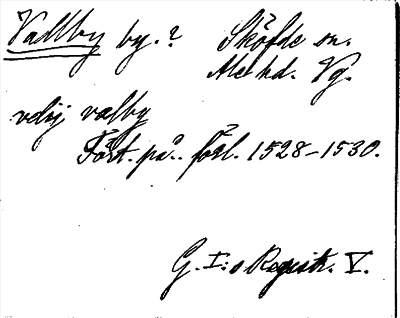 Vallby by.? Sköfde sn.
Ale hd. Vg.
velsij valby
Fört. på. förl. 1528-1530.
G. I:s Registr. V.